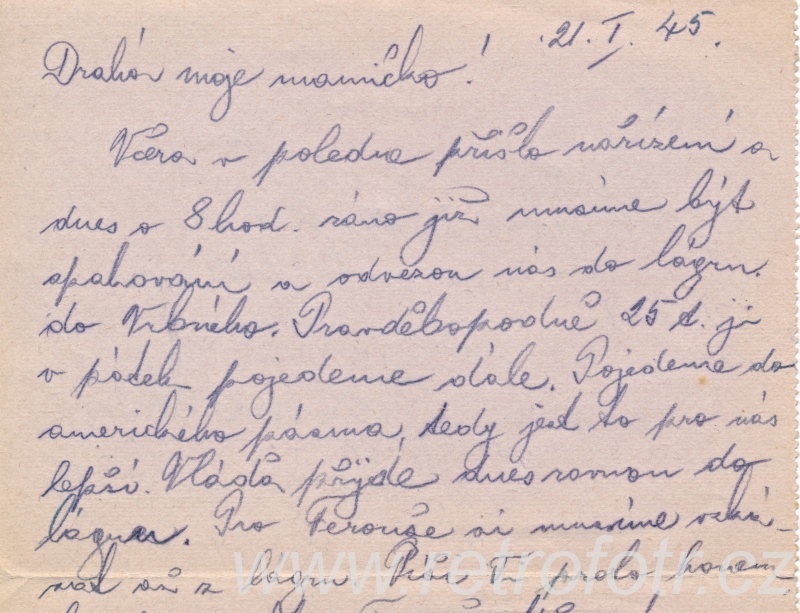 21. I. 45.
Drahá moje maminčko!
Včera v poledne přišlo nařízení a
dnes o 8 hod. ráno již musíme být
spakováni a odvezou nás do lágru.
do Vrbného. Pravděkopodně 25 t. j.
v pátek pojedeme dále. Pojedeme do
amerického pásma, tedy jest to pro nás
lepší. Vláďa přijde dnes rovnou do
lágru. Pro Ferouše si musíme vzká-
zat až z lágru Píši Ti proto honem
www.retrofotr.cz